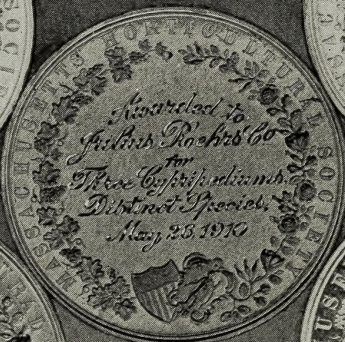 MASSACHUSETTS HORTICULTURAL SOCIETY
Awarded to
Julius Roehrs Co
for
Three Cypripediums
Distinct Species.
May 28 1910